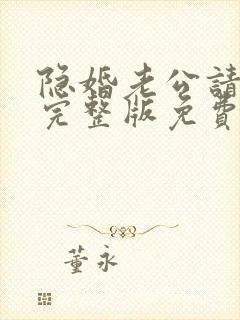 隐婚老公請
完整版免費
董永